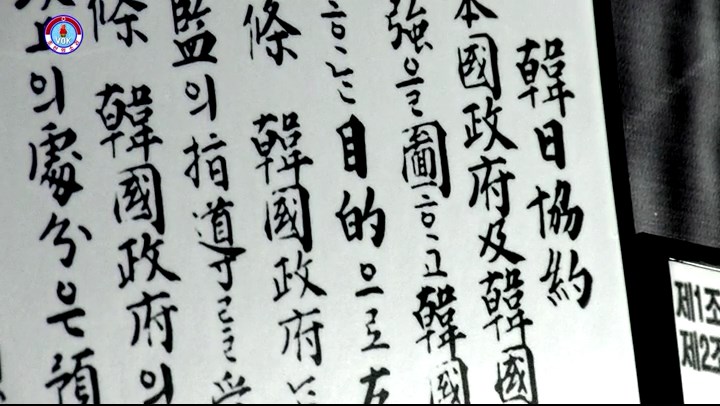 韓日協約
本國政府及韓國
強을圖ᄒᆞ고韓國
ᄒᆞᄂᆞᆫ目的으로左
條 韓國政府
監의指導를受
條 韓國政府의
上의處分은預
제1조
제2조
VOK